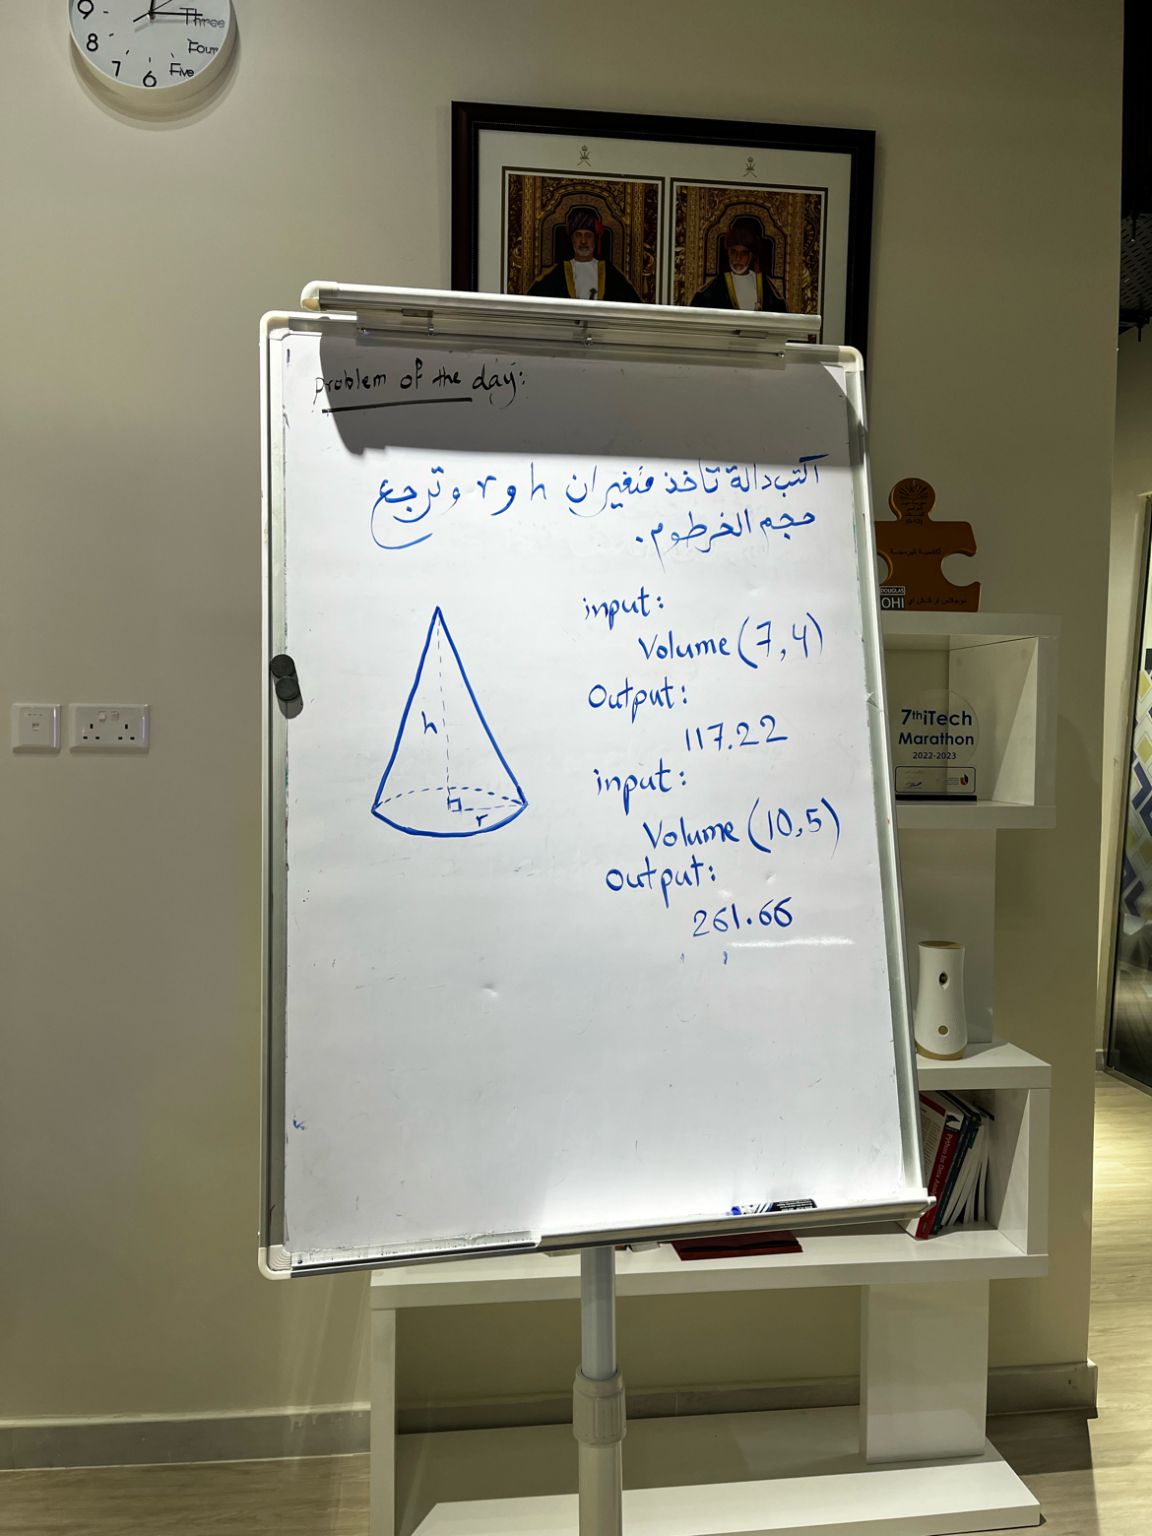 9
Three
8
Four
7
6
Five
Problem of the day:
اكتب دالة تأخذ متغيران h و r وترجع
حجم الخرطوم.
input:
Volume (7,4)
Output:
117.22
input:
Volume (10,5)
Output:
261.66
h
r
DOUGLAS
OHI
7th iTech
Marathon
2022-2023